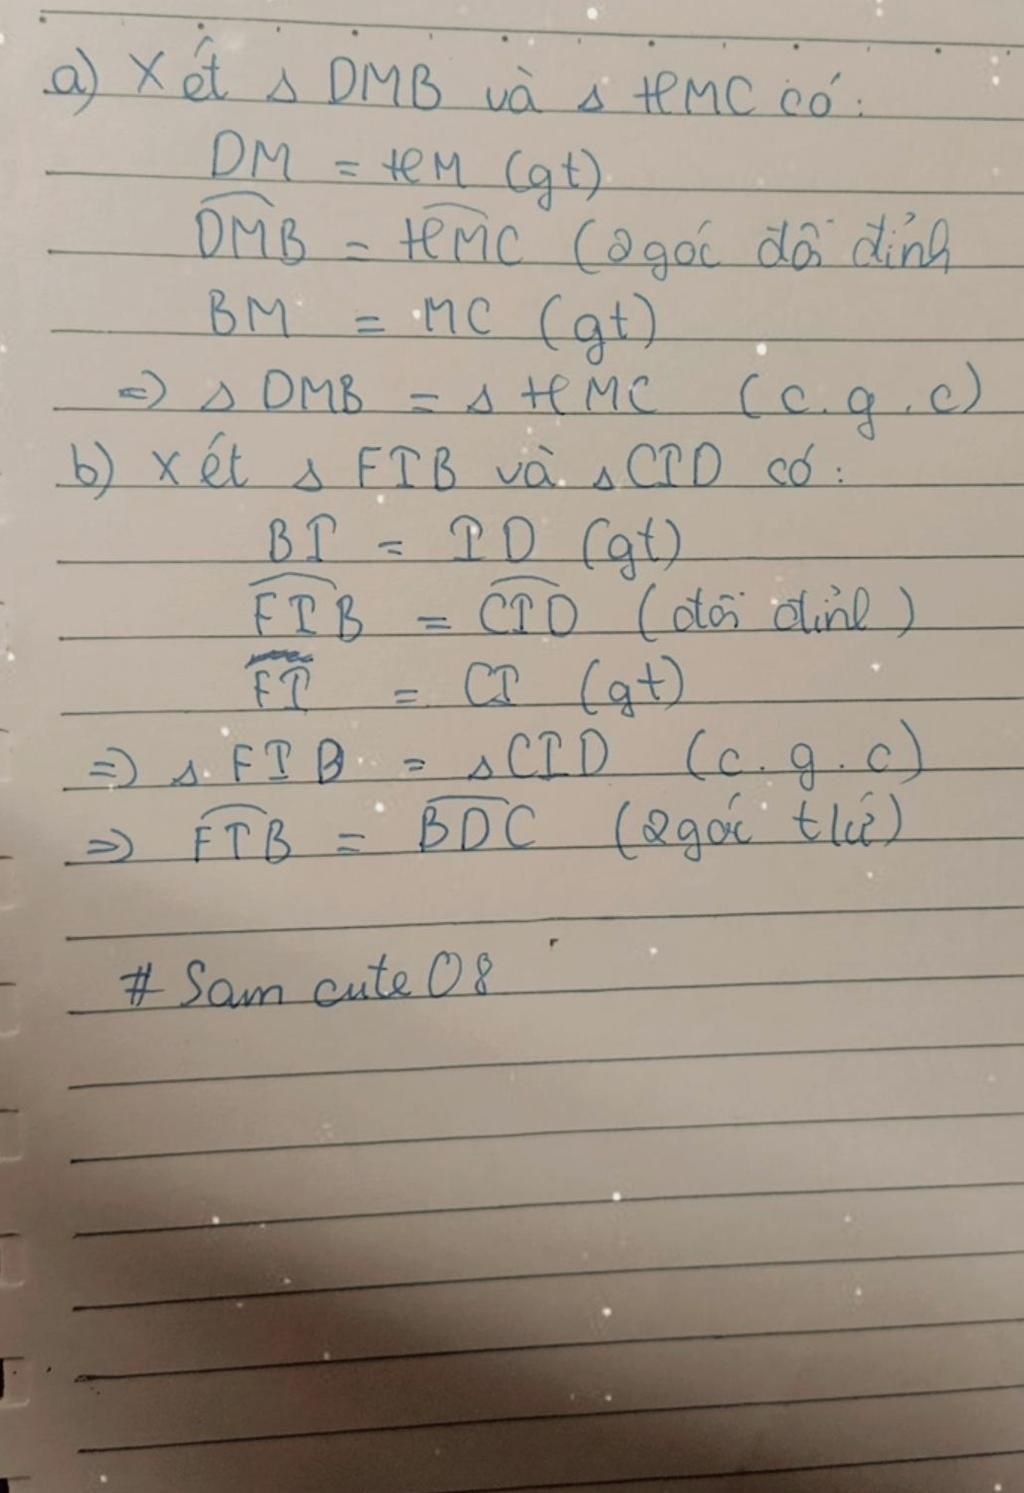 a) Xét Δ DMB và Δ HMC có:
DM = HM (gt)
DMB = HMC (2góc đối đỉnh
BM = MC (gt)
=) Δ DMB = Δ HMC (c.g.c)
b) Xét Δ FIB và ΔCID có:
BI = ID (gt)
FIB = CID (đối đỉnh)
FI = CI (gt)
=) Δ FIB = ΔCID (c.g.c)
=) FIB = BDC (2góc từ)
# Sam cute 08